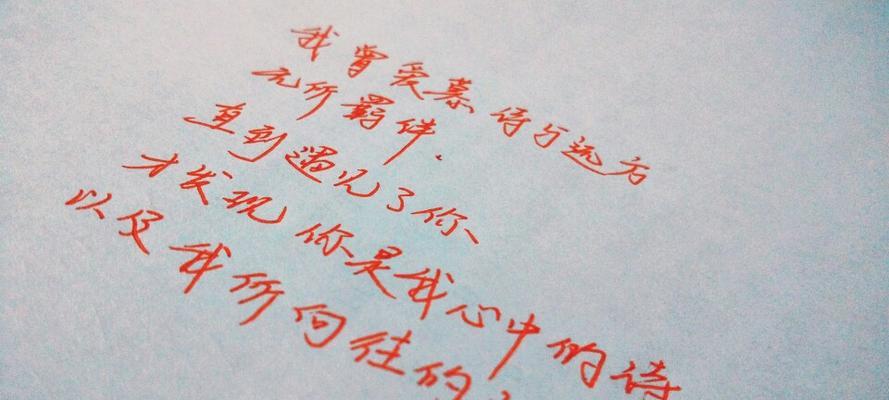 我曾爱慕诗与远方
无所羁绊.
直到遇见了你、
才发现你是我心中的诗
以及我所向往的